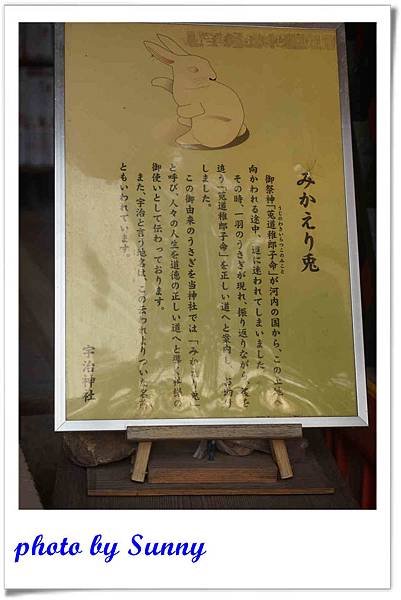 みかえり兎
御祭神「菟道稚郎子命」が河内の国から、この土地へ
うじのわきいらつこのみこと
向かわれる途中、道に迷われてしまいました。
その時、一羽のうさぎが現れ、振り返りながら後を
追う「菟道稚郎子命」を正しい道へと案内し
しました。
この御由来のうさぎを当神社では「みかえり兎」
と呼び、人々の人生を道徳の正しい道へと導く
御使いとして伝わっております。
また、宇治と言う地名は、この云われよりついた
ともいわれています。
宇治神社
photo by Sunny